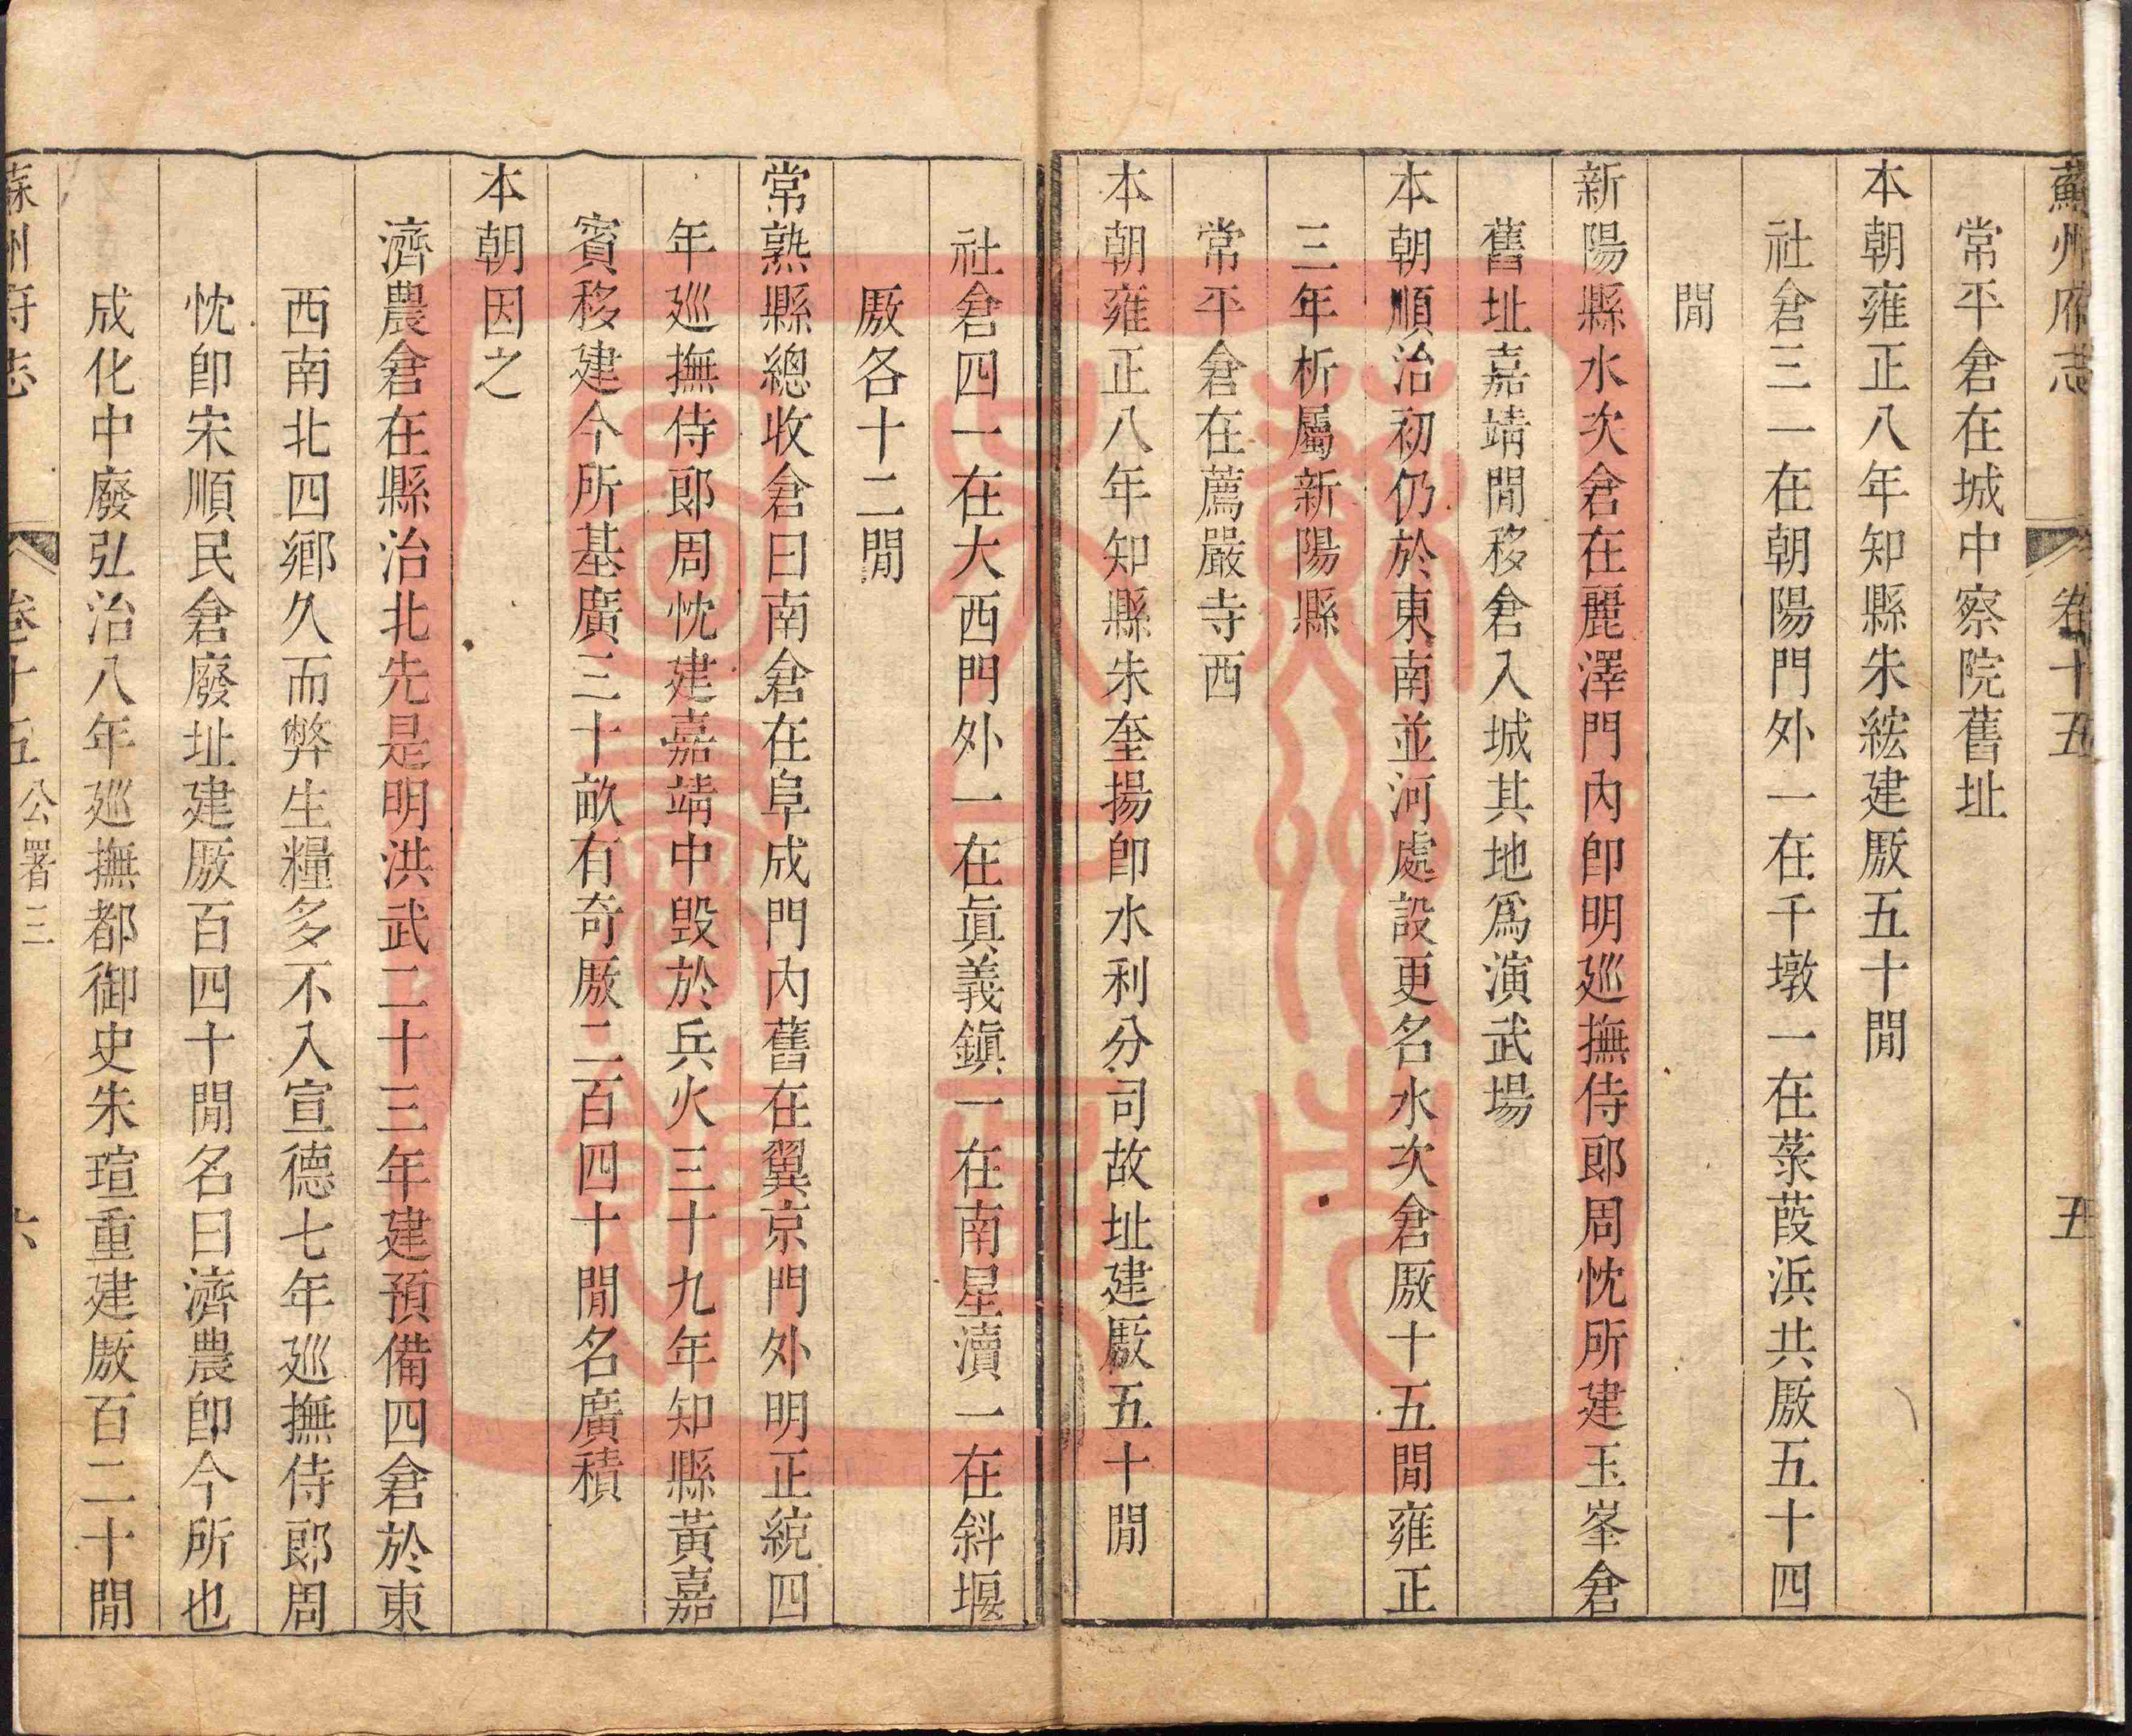 蘇州府志 卷十五 五
常平倉在城中察院舊址
本朝雍正八年知縣朱綋建厫五十間
社倉三一在朝陽門外一在千墩一在菉葭浜共厫五十四
間
新陽縣水次倉在麗澤門內卽明廵撫侍郞周忱所建玉峯倉
舊址嘉靖間移倉入城其地爲演武場
本朝順治初仍於東南並河處設更名水次倉厫十五間雍正
三年析屬新陽縣
常平倉在薦嚴寺西
本朝雍正八年知縣朱奎揚卽水利分司故址建厫五十間
社倉四一在大西門外一在眞義鎭一在南星瀆一在斜堰
厫各十二間
常熟縣總收倉曰南倉在阜成門內舊在翼京門外明正統四
年廵撫侍郞周忱建嘉靖中毀於兵火三十九年知縣黃嘉
賓移建今所基廣三十畝有奇厫二百四十間名廣積
本朝因之
濟農倉在縣治北先是明洪武二十三年建預備四倉於東
西南北四鄉久而弊生糧多不入宣德七年廵撫侍郞周
忱卽宋順民倉廢址建厫百四十間名曰濟農卽今所也
成化中廢弘治八年廵撫都御史朱瑄重建厫百二十間
蘇州府志 卷十五 公署三 六